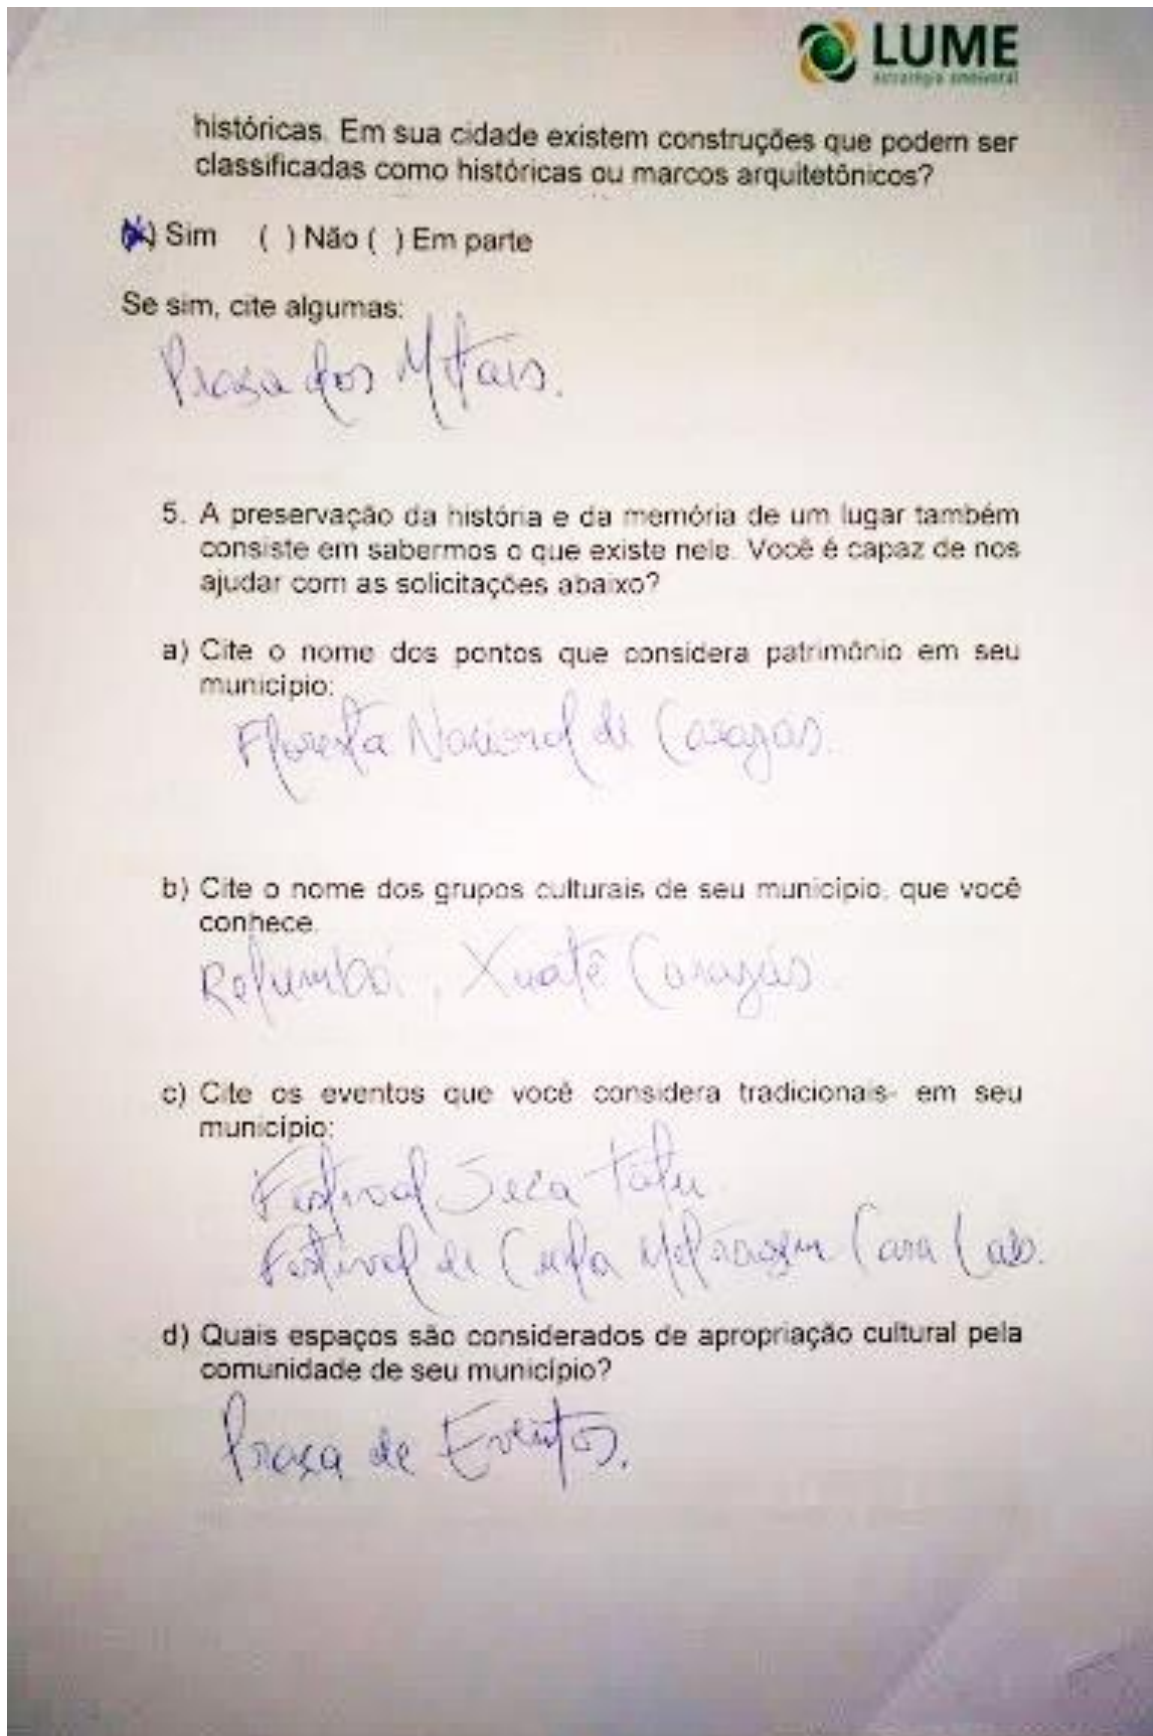 LUME
estratégia ambiental
históricas. Em sua cidade existem construções que podem ser
classificadas como históricas ou marcos arquitetônicos?
(X) Sim ( ) Não ( ) Em parte
Se sim, cite algumas:
Praça dos Metais.
5. A preservação da história e da memória de um lugar também
consiste em sabermos o que existe nele. Você é capaz de nos
ajudar com as solicitações abaixo?
a) Cite o nome dos pontos que considera patrimônio em seu
município:
Floresta Nacional de Carajás.
b) Cite o nome dos grupos culturais de seu município, que você
conhece.
Xuatê Carajás
c) Cite os eventos que você considera tradicionais- em seu
município:
Festival Jeca Tatu
Festival de
d) Quais espaços são considerados de apropriação cultural pela
comunidade de seu município?
Praça de Eventos.